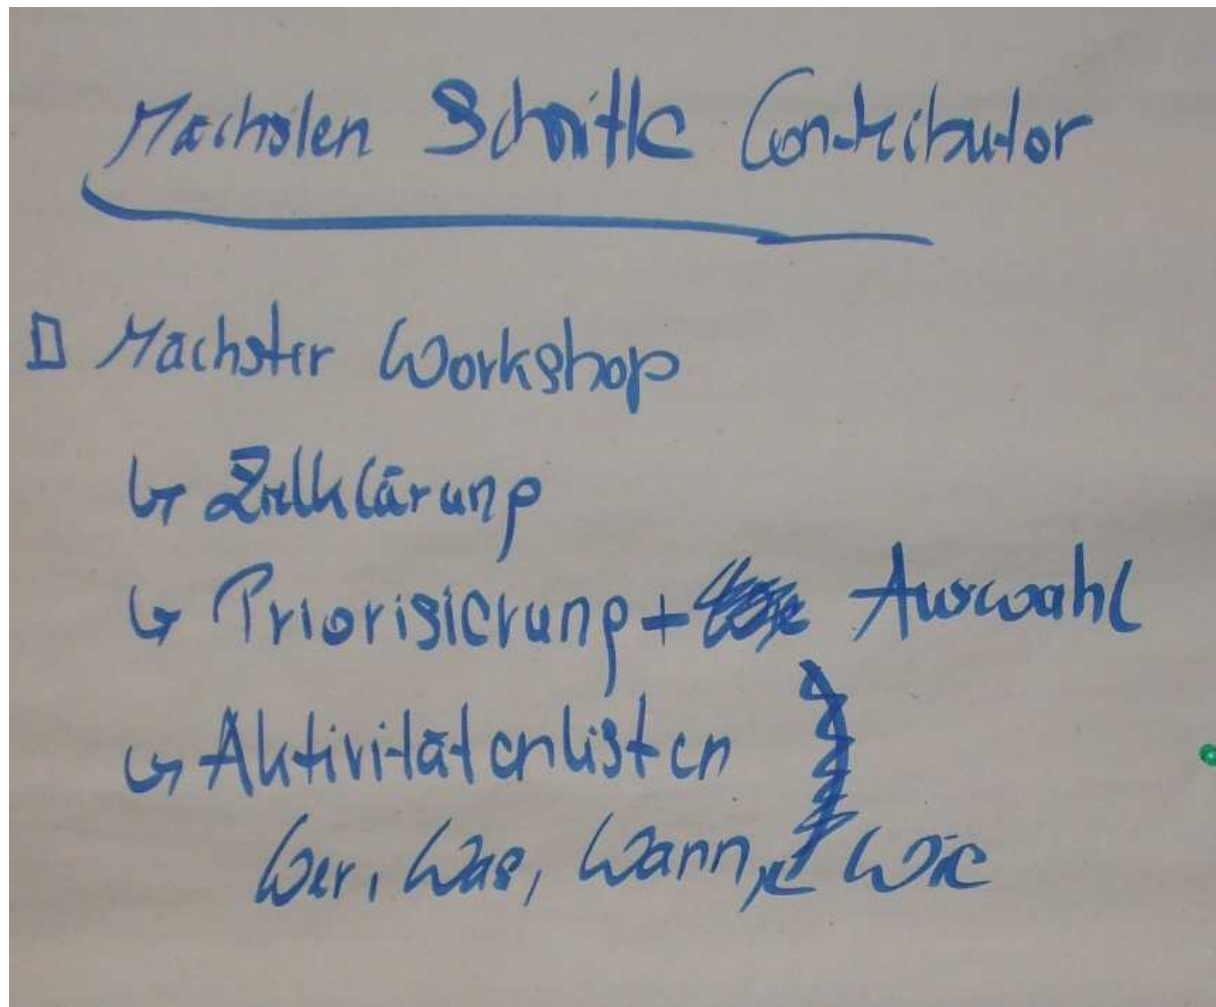 Nächsten Schritte Contributor
Nächster Workshop
↳ Zielklärung
↳ Priorisierung + Auswahl
↳ Aktivitätenlisten
Wer, Was, Wann, Wie